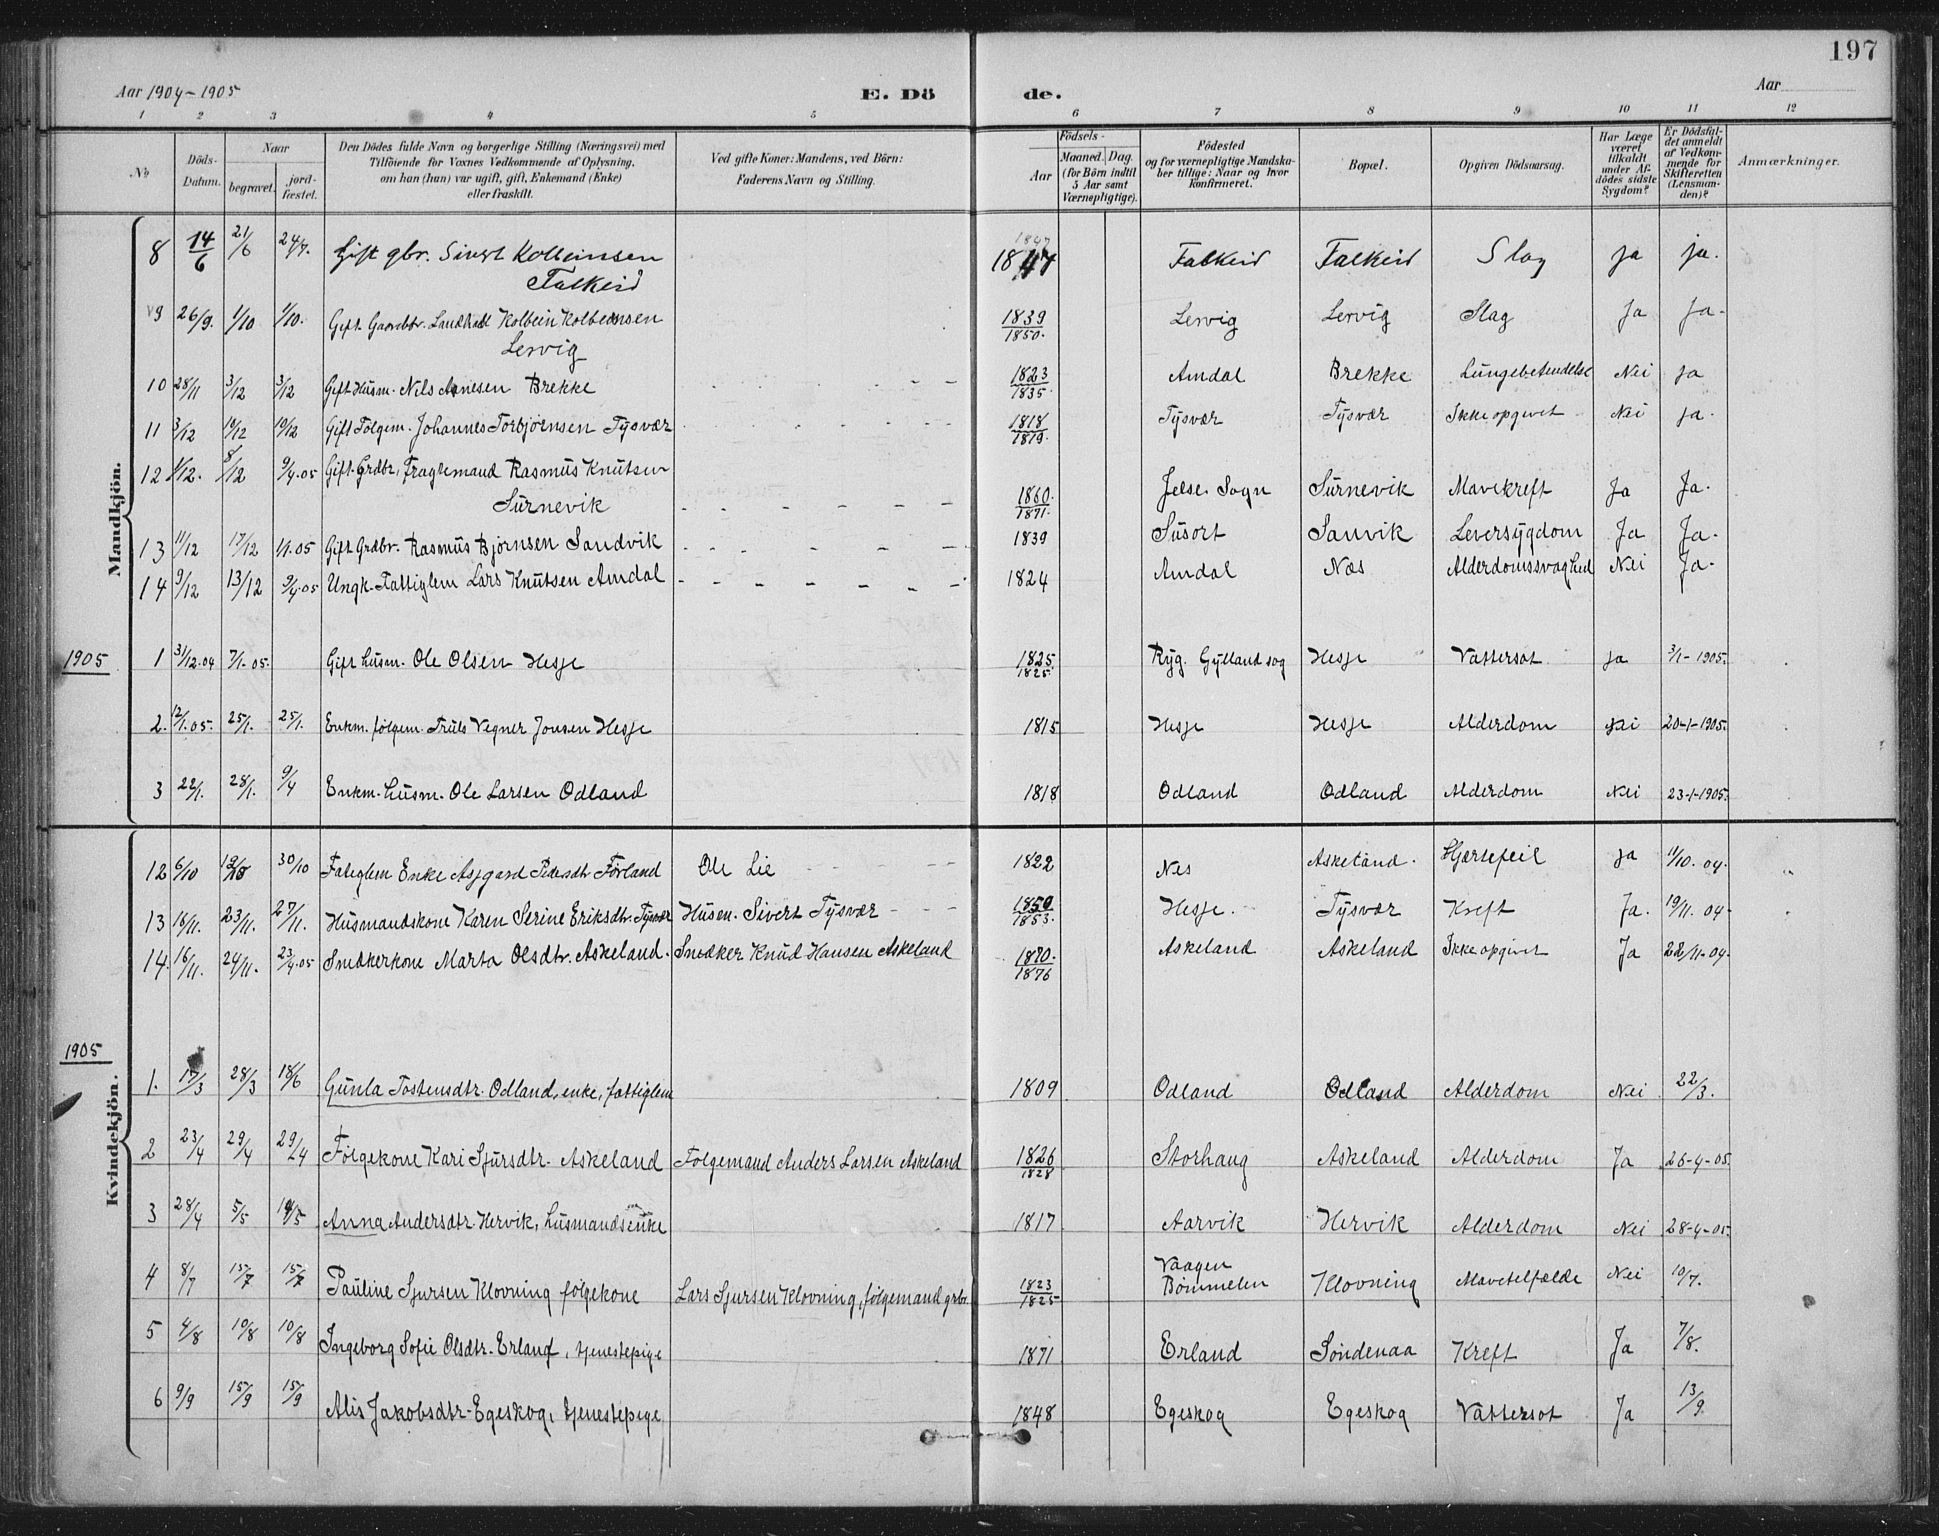 197
Aar 1904-1905 E. Dö de. Aar
1 2 3 4 5 6 7 8 9 10 11 12
No Döds-Datum. Naar begravet. jord-fæstet. Den Dödes fulde Navn og borgerlige Stilling (Næringsvei) med Tilföiende for Voxnes Vedkommende af Oplysning, om han (hun) var ugift, gift, Enkemand (Enke) eller fraskilt. Ved gifte Koner: Mandens, ved Börn: Faderens Navn og Stilling. Födsels- Aar Maaned. Dag. (for Börn indtil 5 Aar samt Værnepligtige). Födested og for værnepligtige Mandska-ber tillige: Naar og hvor konfirmeret. Bopæl. Opgiven Dödsaarsag. Har Læge været tilkaldt under Af-dödes sidste Sygdom? Er Dödsfal-det anmeldt af Vedkom-mende for Skifteretten (Lensman-den)? Anmærkninger.
Mandkjön.
8 14/6 21/6 24/7. Gift gbr. Sivert Kolbeinsen Falkeid 1847 1847 Falkeid Falkeid Slag ja ja.
9 26/9. 1/10 1/10. Gift Gaardbr. Landhadl Kolbein Kolbensen Lervig 1839/1850. Lervig Lervig Slag Ja Ja.
10 28/11 3/12 3/12 Gift Husm. Nils Aanesen Brekke 1823/1835. Amdal Brekke Lungebetendelse Nei ja
11 3/12 19/12 19/12 Gift Følgem. Johannes Torbjørnsen Tysvær 1818/1819. Tysvær Tysvær Ikke opgivet Nei ja.
12 1/12. 8/12 9/4.05 Gift. Grdbr, Fragtemand Rasmus Knutsen Surnevik 1860./1871. Jelse Sogn Surnevik Mavekreft Ja Ja.
13 11/12 17/12 1/1.05 Gift Grdbr. Rasmus Bjørnsen Sandvik 1839 Susort Sanvik Leversygdom Ja Ja.
14 9/12 13/12 9/4.05 Ungk. Fattiglem Lars Knutsen Amdal 1824 Amdal Næs Alderdomssvaghed Nei Ja.
1905 1 31/12.04 7/1.05. Gift husm. Ole Olsen Hesje 1825/1825. Ryg. Gylland sog Hesje Vattersot ja 3/1-1905.
2. 12/1.05. 25/1. 25/1. Enkm. følgem. Truls Vegner Jonsen Hesje 1815 Hesje Hesje Alderdom Nei 20-1-1905.
3 22/1. 28/1. 9/4 Enkm. husm. Ole Larsen Odland 1818 Odland Odland Alderdom Nei 23-1-1905.
Kvindekjön.
12 6/10 12/10 30/10 Fatiglem Enke Asgard Pedersdtr Førland Ole Lie 1822 Nes Askeland. Hjærtefeil ja 11/10. 04.
13 16/11. 23/11. 27/11. Husmandskone Karen Serine Eriksdtr. Tysvær Husm. Sivert Tysvær 1850/1853. Hesje. Tysvær Kreft Ja. 19/11. 04.
14. 16/11. 24/11. 23/4.05 Snedkerkone Marta Olsdtr. Askeland. Snedker Knud Hansen Askeland 1870./1876 Askeland Askeland Ikke opgivet Ja 22/11-04.
1905
1. 17/3 28/3 18/6 Gunla Tostensdtr. Odland, enke, fattiglem 1809 Odland Odland Alderdom Nei 22/3.
2 23/4 29/4 29/4 Følgekone Kari Sjursdtr. Askeland Følgemand Anders Larsen Askeland 1826/1828 Storhaug Askeland Alderdom Ja 26-4-05.
3 28/4 5/5 14/5 Anna Andersdtr. Hervik, husmandsenke 1817 Aarvik Hervik Alderdom Nei 28-4-05.
4 8/7 15/7 15/7 Pauline Sjursen Klovning følgekone Lars Sjursen Klovning, følgemand grbr. 1823/1825 Vaagen Bømmelen Klovning Mavetilfælde Nei 10/7.
5 4/8 10/8 10/8 Ingeborg Sofie Olsdtr. Erland, tjenestepige 1871 Erland Søndenaa Kreft Ja 7/8.
6 9/9 15/9 15/9 Alis Jakobsdtr. Egeskog, tjenestepige 1848 Egeskog Egeskog Vattersot Ja 13/9.